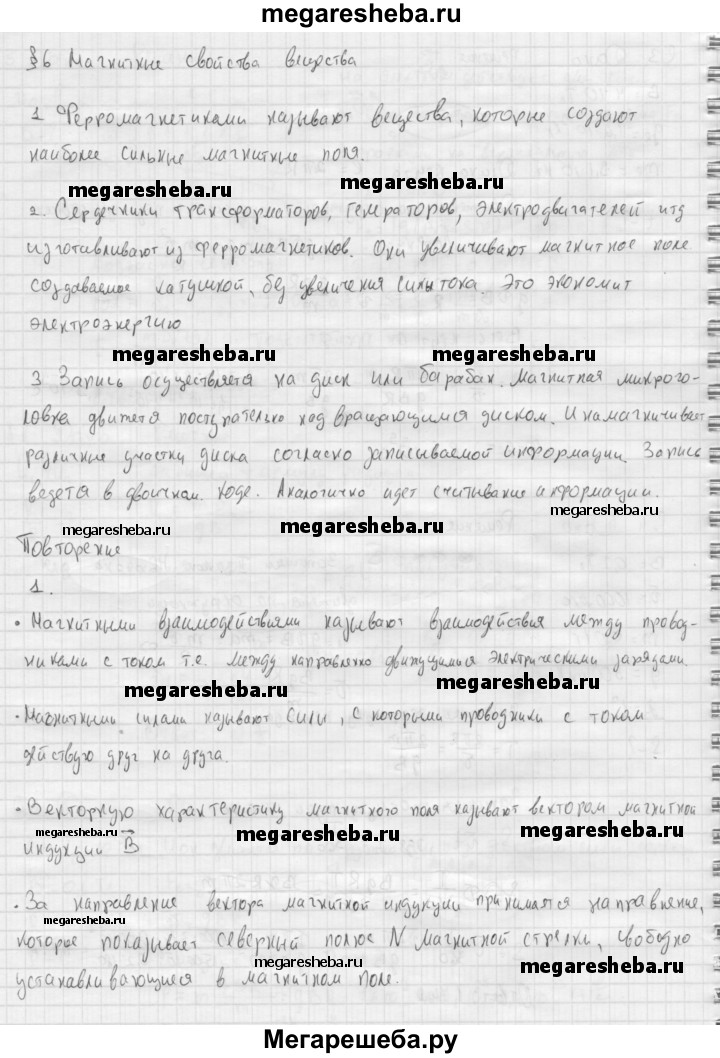 megaresheba.ru
§6 Магнитные свойства вещества
1 Ферромагнетиками называют вещества, которые создают
наиболее сильные магнитные поля.
megaresheba.ru megaresheba.ru
2. Сердечники трансформаторов, генераторов, электродвигателей итд
изготавливают из ферромагнетиков. Они увеличивают магнитное поле
создаваемое катушкой, без увеличения силы тока. Это экономит
электроэнергию
megaresheba.ru megaresheba.ru
3 Запись осуществляется на диск или барабан. Магнитная микрого-
ловка движется поступательно над вращающимся диском. И намагничивает
различные участки диска согласно записываемой информации. Запись
ведется в двоичном коде. Аналогично идет считывание информации.
megaresheba.ru megaresheba.ru megaresheba.ru
Повторение
1.
• Магнитными взаимодействиями называют взаимодействия между провод-
никами с током т.е. между направленно движущимися электрическими зарядами.
megaresheba.ru megaresheba.ru
• Магнитными силами называют силы, с которыми проводники с током
действую друг на друга.
• Векторную характеристику магнитного поля называют вектором магнитной
megaresheba.ru megaresheba.ru megaresheba.ru
индукции B
• За направление вектора магнитной индукции принимается направление,
megaresheba.ru
которое показывает северный полюс N магнитной стрелки, свободно
megaresheba.ru megaresheba.ru
устанавливающиеся в магнитном поле.
Мегарешеба.ру